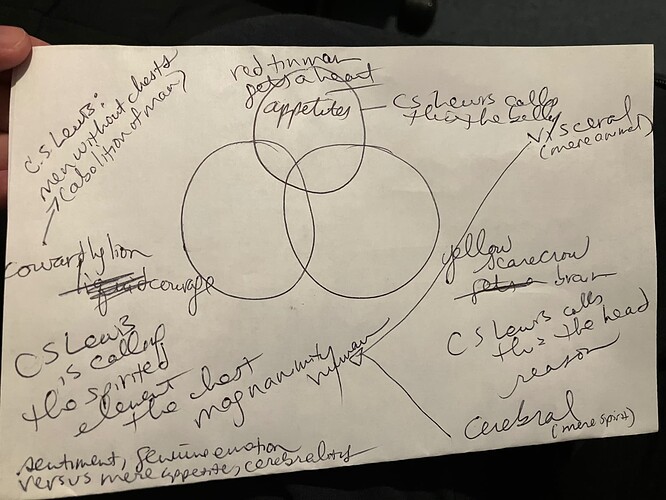 C.S Lewis:
men without chests
(abolition of man)
red tin man
gets a heart
appetites
CS Lewis calls
this the belly
visceral
(mere animal)
cowardly lion
liquid courage
yellow
scarecrow
brain
CS Lewis calls
this the head
reason
cerebral
(mere spirit)
CS Lewis
is calling
the spirited
element
the chest
magnanimity
sentiment, genuine emotion
versus mere appetite, cerebrality